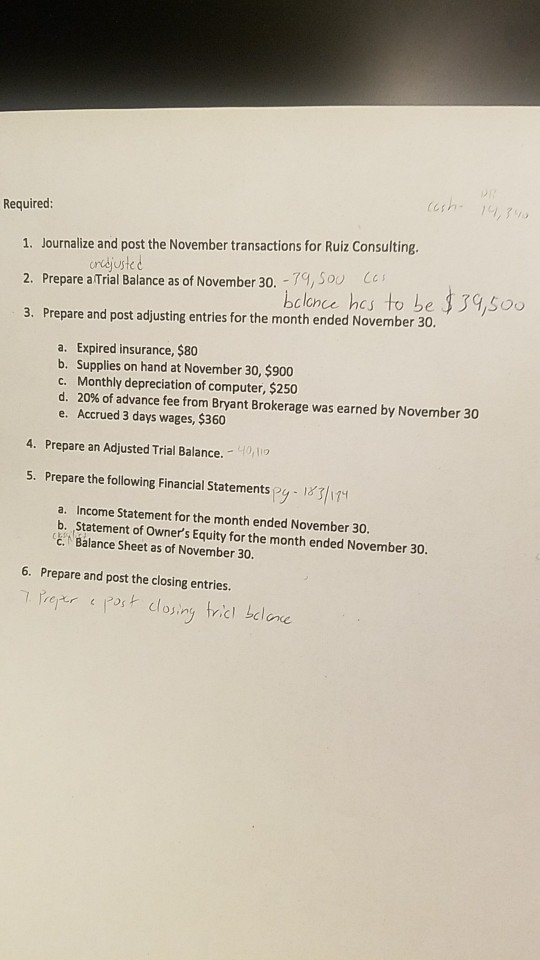 Required:
cash- 14,340
1. Journalize and post the November transactions for Ruiz Consulting.
unadjusted
2. Prepare a Trial Balance as of November 30. - 39,500
balance has to be $39,500
3. Prepare and post adjusting entries for the month ended November 30.
a. Expired insurance, $80
b. Supplies on hand at November 30, $900
c. Monthly depreciation of computer, $250
d. 20% of advance fee from Bryant Brokerage was earned by November 30
e. Accrued 3 days wages, $360
4. Prepare an Adjusted Trial Balance. - 40,110
5. Prepare the following Financial Statements pg - 183/194
a. Income Statement for the month ended November 30.
b. Statement of Owner's Equity for the month ended November 30.
c. Balance Sheet as of November 30.
6. Prepare and post the closing entries.
7. Preper a post closing trial balance